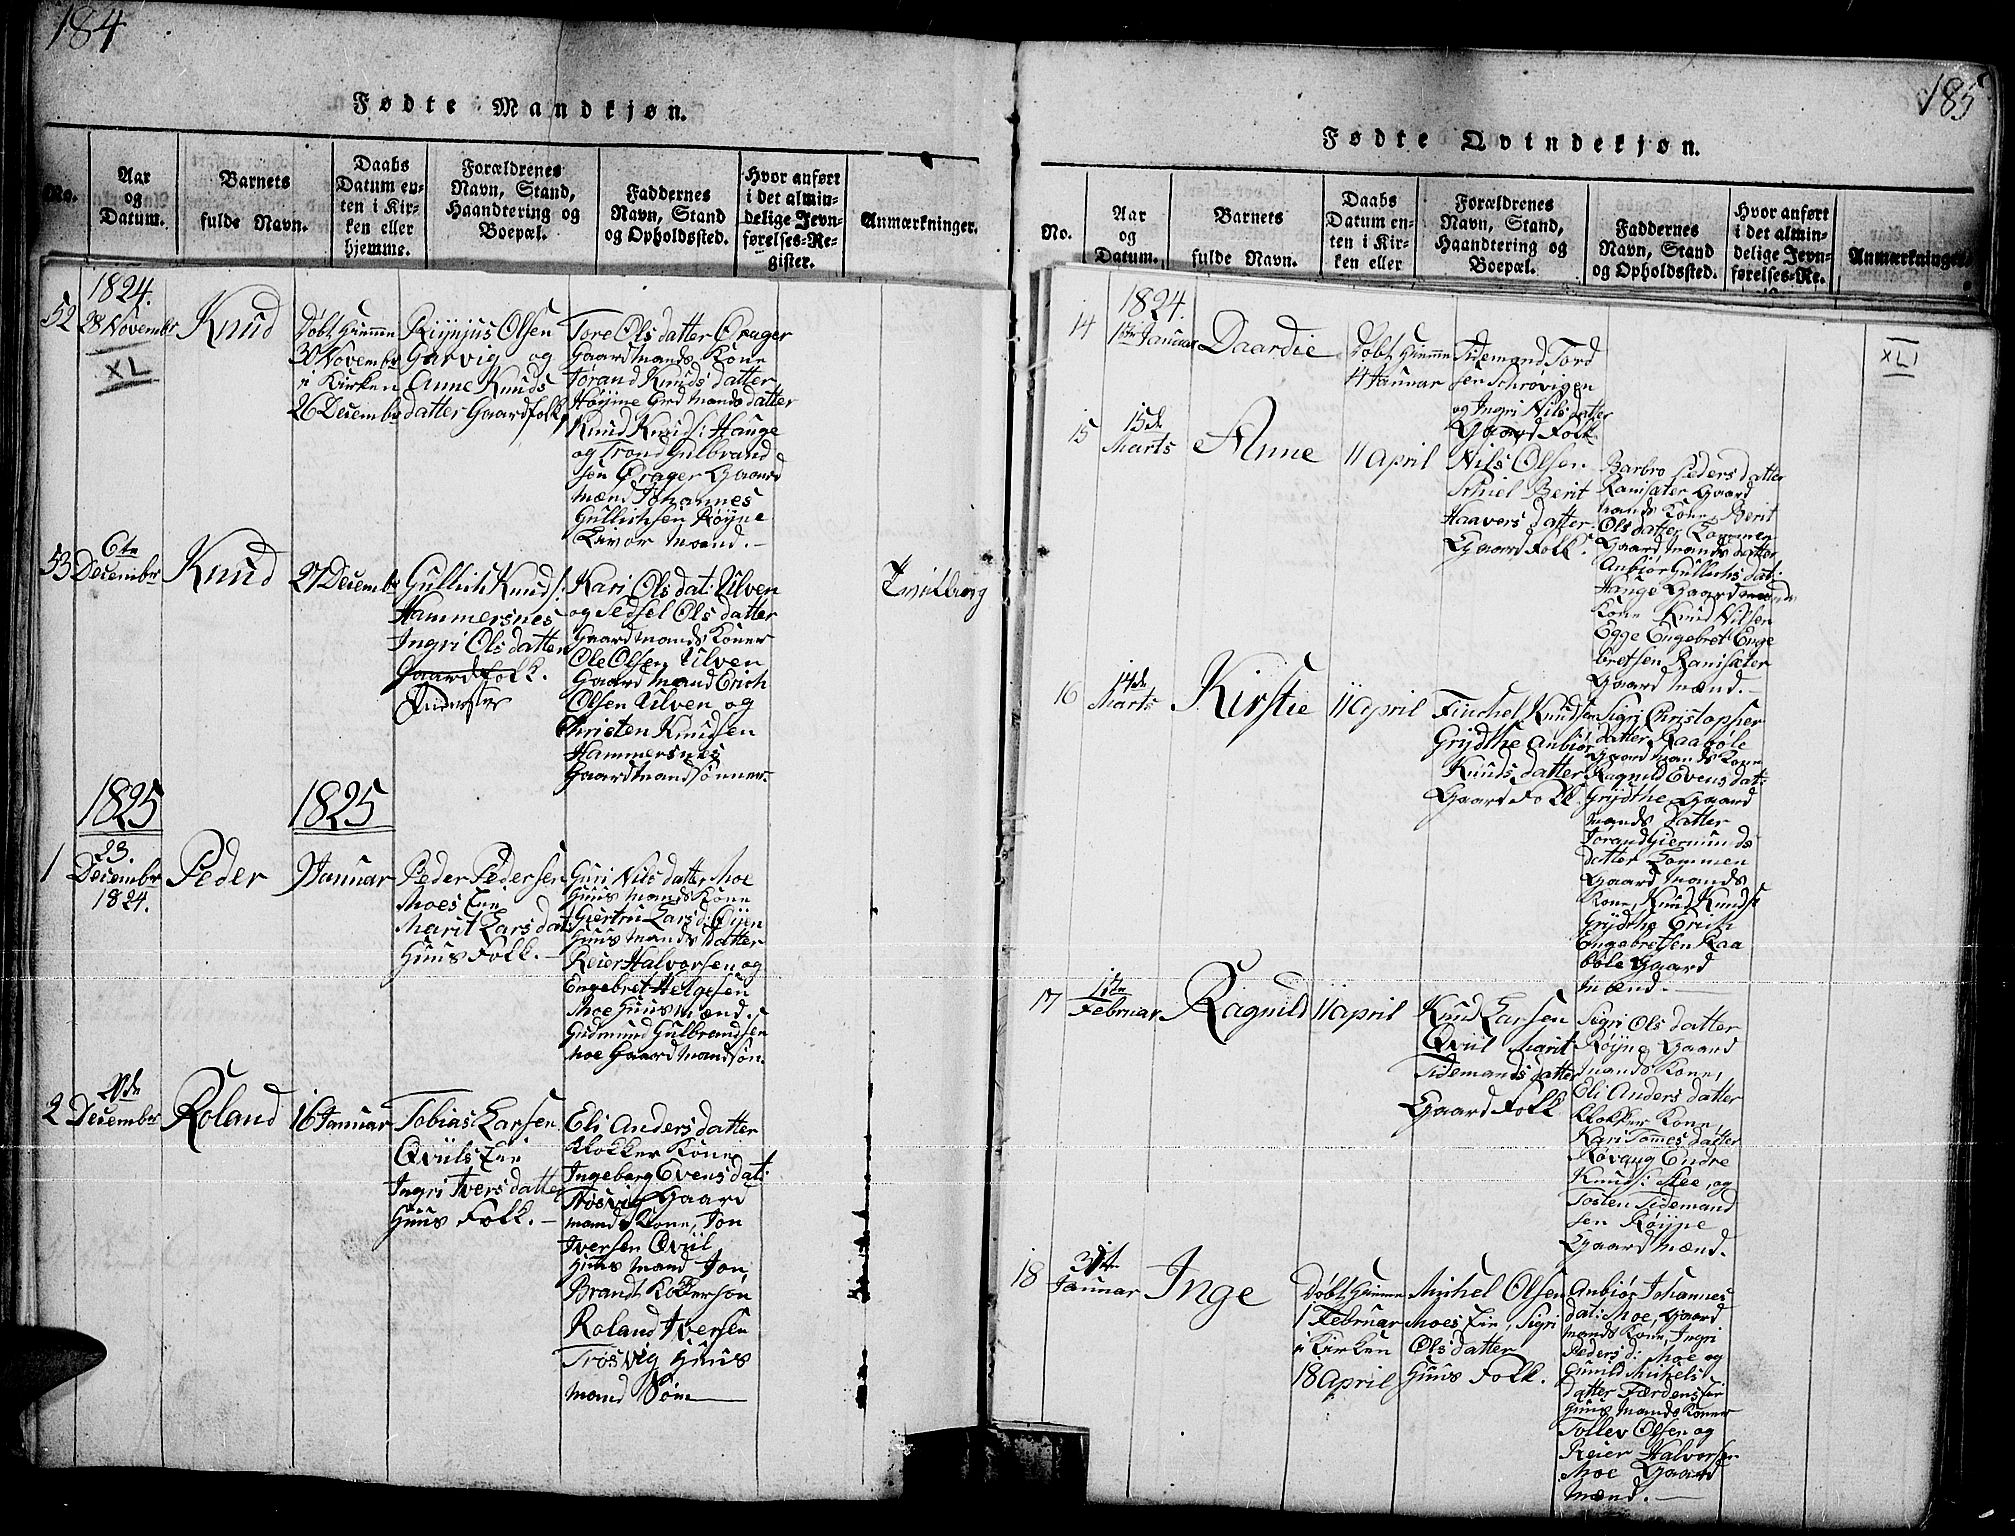 184
Fødte Mandkjøn.
No.
Aar
og
Datum.
Barnets
fulde Navn.
Daabs
Datum en-
ten i Kir-
ken eller
hjemme.
Forældrenes
Navn, Stand,
Haandtering og
Boepæl.
Faddernes
Navn, Stand
og Opholdssted.
Hvor anført
i det almin-
delige Jevn-
førelses-Re-
gister.
Anmærkninger.
1824.
52
28 Novembr
XL
Knud
Døbt Hiemme
30 Novembr
i Kirken
26 Decembr
Olsen
Garvig og
Anne Knuds
datter Gaardfolk
Tore Olsdatter Orager
Gaardmands Kone
Torand Knudsdatter
Høyjne Grdmandsdatter
Knud Knuds: Hauge
og Trond Gulbrand
sen Orager Gaard
mænd Johannes
Gullichsen Røijne
mand.
53
6te
Decembr
Knud
27 Decembr
Gullich Knuds:
Hammersnes
Ingri Olsdatter
Gaardfolk.
Kari Olsdat: Ulven
og Sedsel Olsdatter
Gaardmands Koner
Ole Olsen Ulven
Gaardmand Erich
Olsen Ulven og
Christen Knudsen
Hammersnes
Gaardmandsønner
1825
1825
1
23.
Decembr
1824.
Peder
9 Januar
Peder Pedersen
Moes Eie
Marit Larsdat:
Huus Folk.
Guri Nilsdatter Moe
Huusmands Kone
Giertru Larsd: Øijen
Huusmands Datter
Reier Halvorsen og
Engebret Helgesen
Moe Huusmænd.
Gudmund Gulbrandsen
Moe Gaardmandsøn.
2
20de
Decembr
Roland
16 Januar
Tobias Larsen
Qviils Eie
Ingri Iversdatter
Huus Folk.
Eli Andersdatter
Klokker Kone
Ingeborg Evensdat:
Trøsvig Gaard
mands Kone, Jon
Iversen Qviil
Huusmand Jon
Brandt
Roland Iversen
Trøsvig Huus
mand Søn
185
Fødte Qvindekjøn.
No.
Aar
og
Datum.
Barnets
fulde Navn.
Daabs
Datum en-
ten i Kir-
ken eller
Forældrenes
Navn, Stand,
Haandtering og
Boepæl.
Faddernes
Navn, Stand
og Opholdssted.
Hvor anført
i det almin-
delige Jevn-
førelses-Re-
Anmærkninger.
1824.
14
Januar
Daardie
Døbt Hiemme
14 Januar
Tidemand Tord
sen Schrøvigen
og Ingri Nilsdatter
Gaard Folk
XLI
15
15de
Marts
Anne
11 April
Nils Olsen
Schiel Berit
Haavers datter
Gaard Folk.
Barbro Pedersdatter
Ranisæter Gaard
mands Kone, Berit
Olsdatter Tommen
Gaardmands datter
Anbiør Gullichsdat:
Hauge Gaardmands
Kone Knud Nilsen
Egge Engebret Enge
bretsen Ranisæter
Gaardmænd.
16
14de
Marts
Kirstie
11 April
Finchel Knudsen
Grydthe Anbiør
Knudsdatter
Gaard Folk.
Sigri Christopher
datter Raabøle
Gaardmands Kone
Ragnild Evensdat:
Grydthe Gaard
mands Datter
Torand Giermunds
datter Tommen
Gaard mands
Kone, Knud Knuds:
Grydthe Erich
Engebretsen Raa
bøle Gaard
mænd.
17
Februar
Ragnild
11 April
Knud Larsen
Qviil Marit
Tidemandsdatter
Gaard Folk
Sigri Olsdatter
Røijne Gaard
mands Kone,
Eli Andersdatter
Klokker Kone,
Kari Tomesdatter
Røvang Endre
Knuds: Slee, og
Tosten Tidemand
sen Røijne
Gaardmænd.
18
31te
Januar
Inge
Døbt Hiemme
1 Februar
i Kirken
18 April
Michel Olsen
Moes Eie, Sigri
Olsdatter
Huus Folk.
Anbiør Johannes
dat: Moe, Gaard
mands Kone, Ingri
Pedersd: Moe og
Gunild Michels
datter
Huusmands Koner
Tollev Olsen og
Reier Halvorsen
Moe Gaard
mænd.